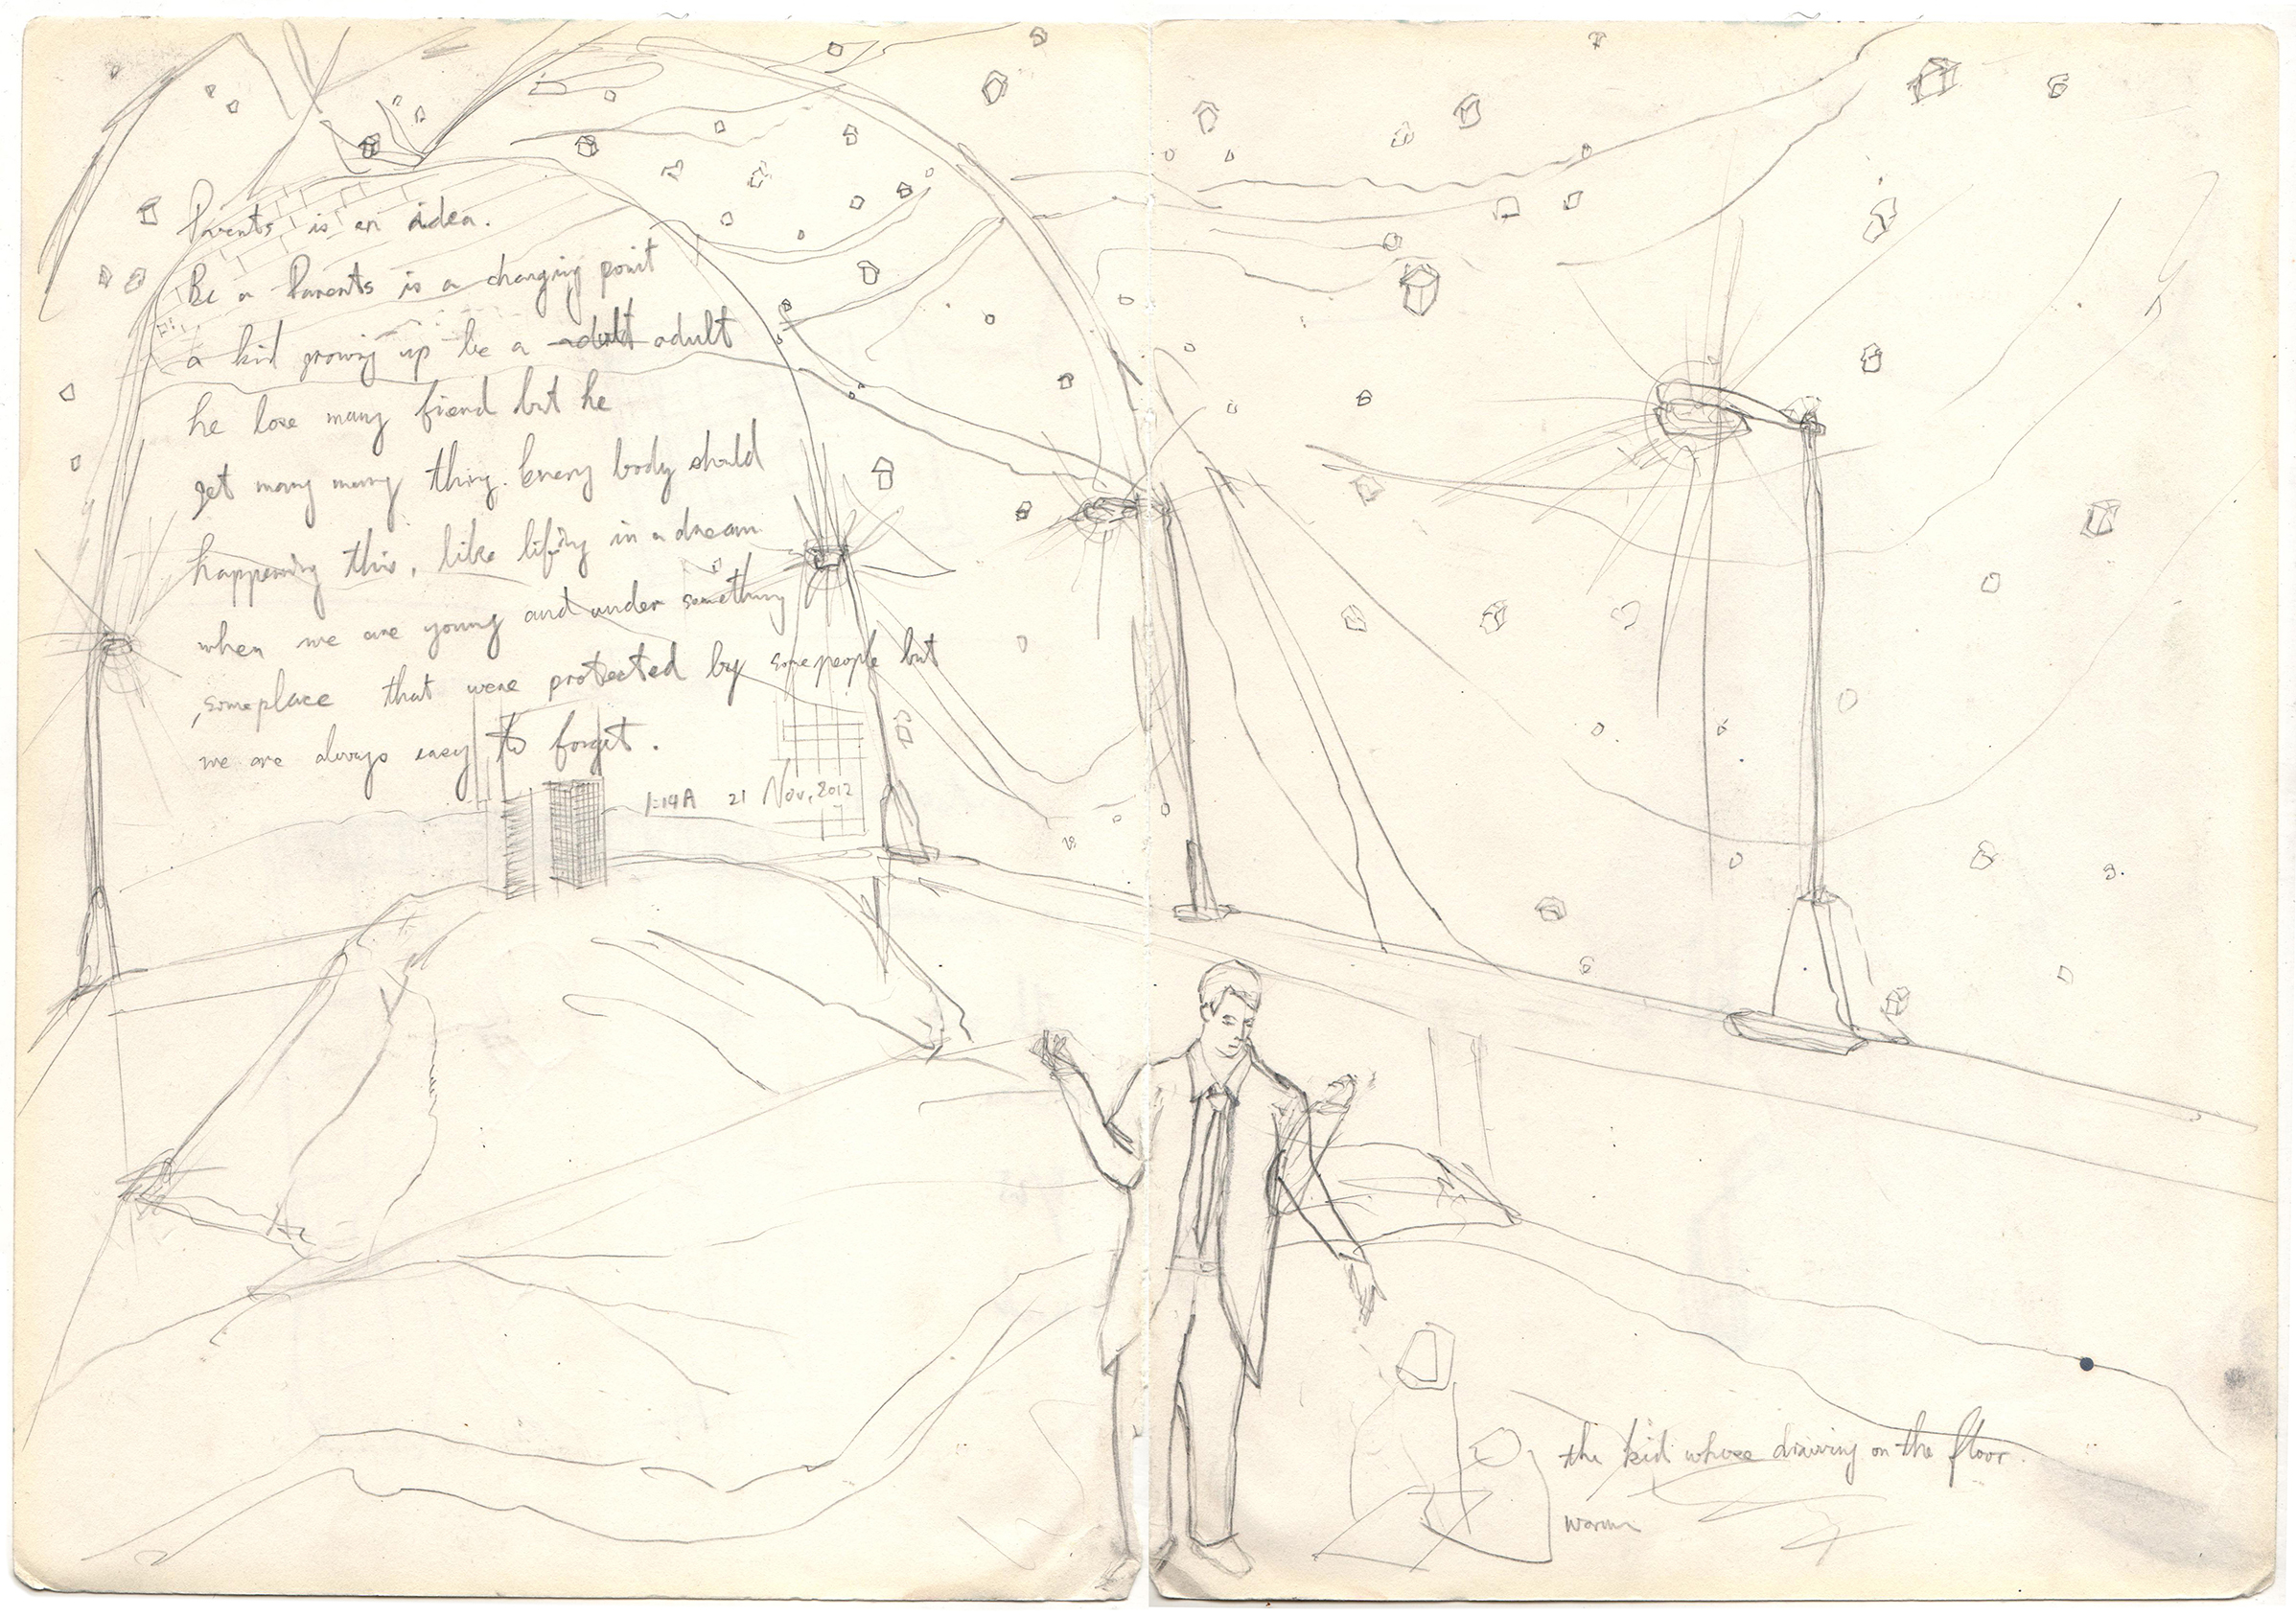 Parents is an idea.
Be a Parents is a changing point
a kid growing up be a adult adult
he lose many friend but he
get many many thing. Every body should
happening this, like lifing in a dream
when we are young and under something
, someplace that were protected by some people but
we are always easy to forget.
1:14A 21 Nov, 2012
the kid whose drawing on the floor.